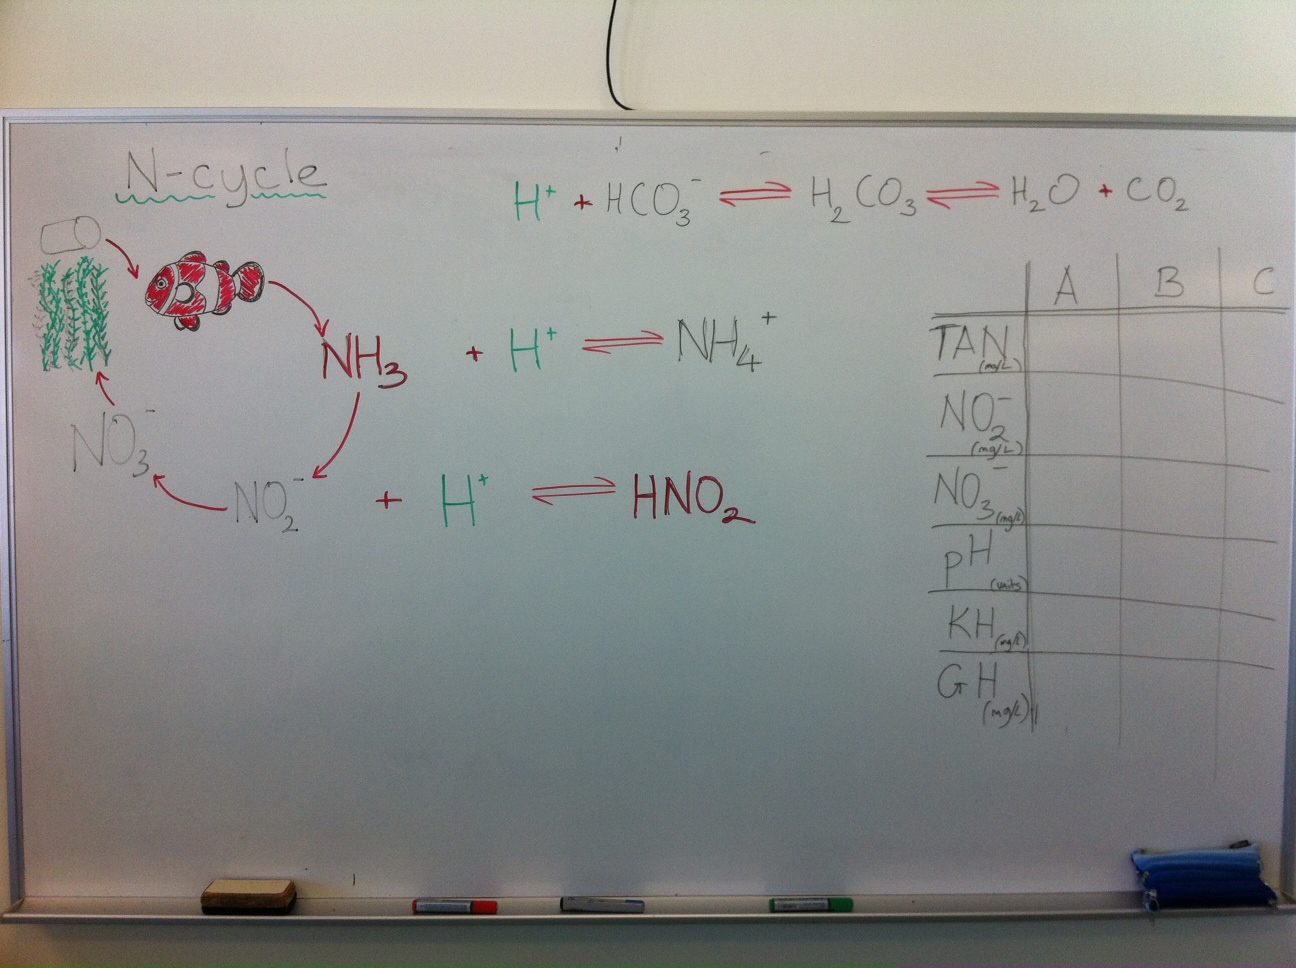 N-cycle
H⁺ + HCO₃⁻ ⇌ H₂CO₃ ⇌ H₂O + CO₂
NH₃ + H⁺ ⇌ NH₄⁺
NO₃⁻
NO₂⁻ + H⁺ ⇌ HNO₂
A B C
TAN (mg/L)
NO₂⁻ (mg/L)
NO₃⁻ (mg/L)
pH (units)
KH (mg/L)
GH (mg/L)